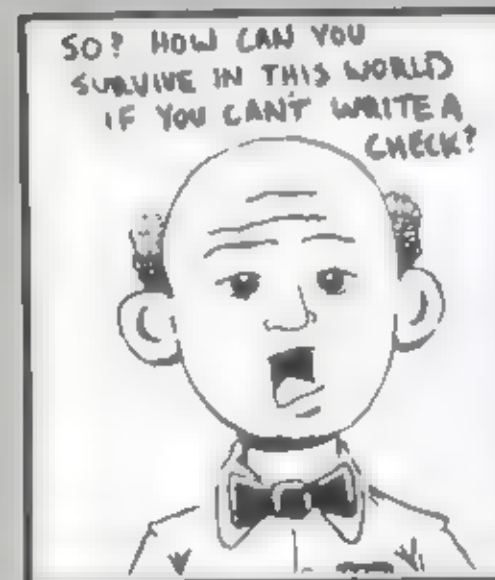 SO? HOW CAN YOU
SURVIVE IN THIS WORLD
IF YOU CAN'T WRITE A
CHECK?